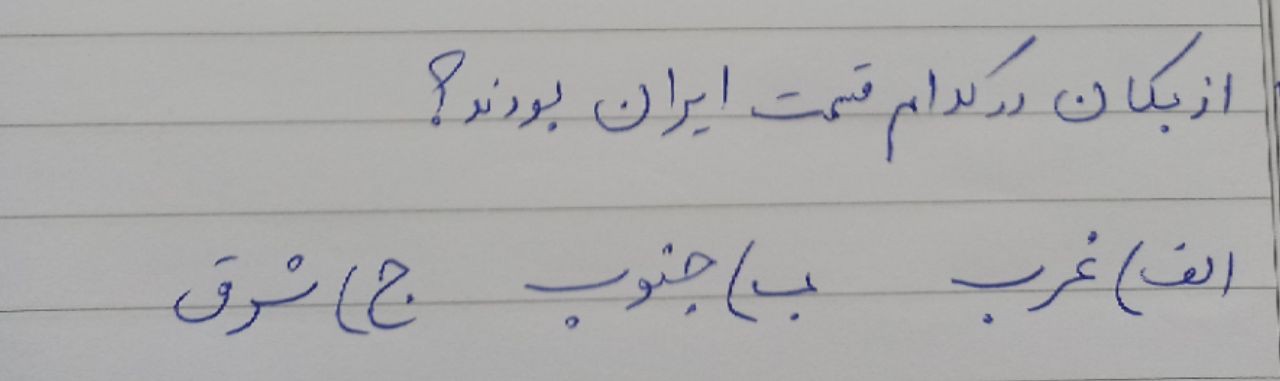 ازبکان در کدام قسمت ایران بودند؟
الف) غرب ب) جنوب ج) شرق